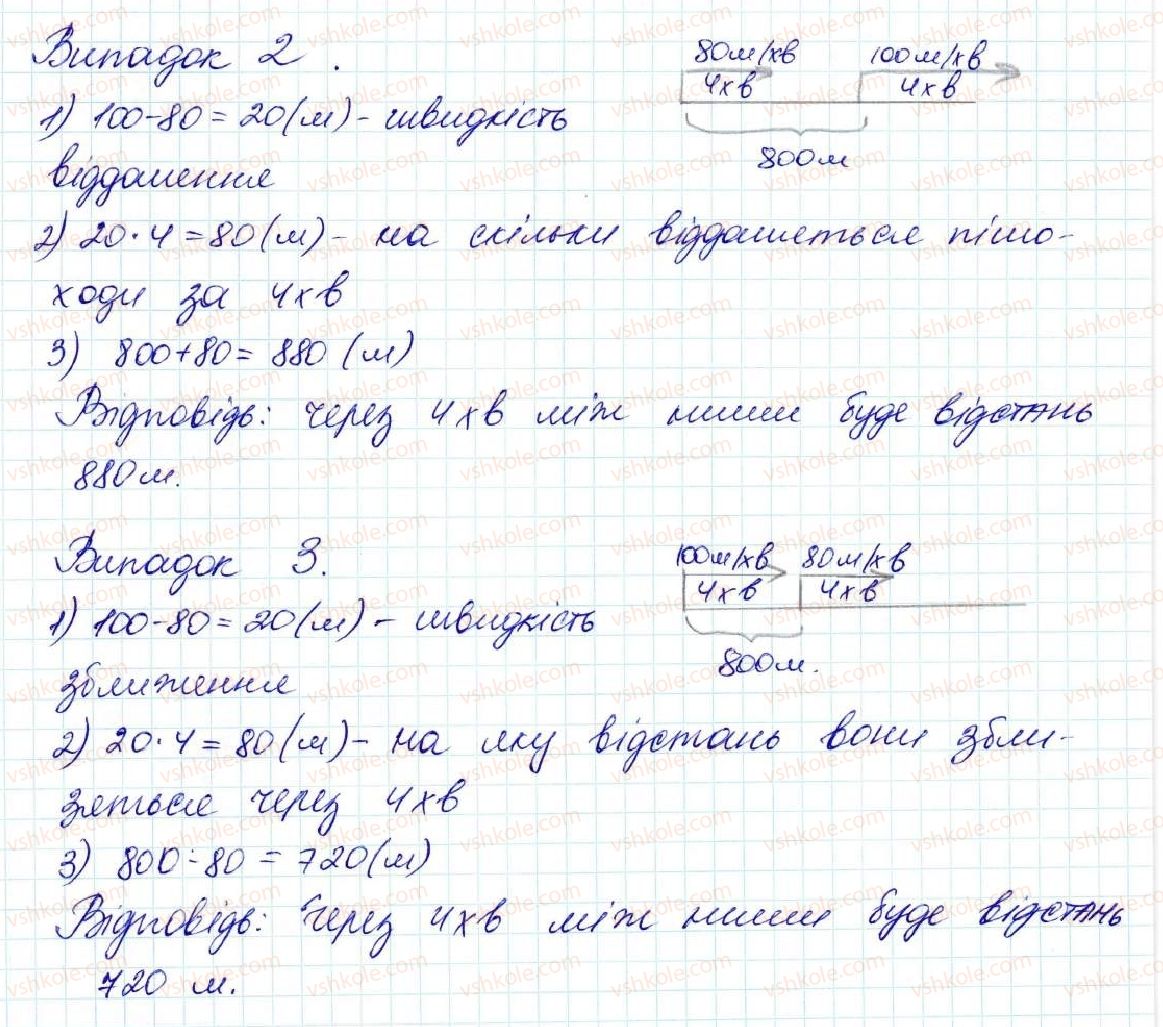 Випадок 2.
80м/хв 100м/хв
4хв 4хв
800м
1) 100-80=20(м)- швидкість
віддалення
2) 20·4=80(м)- на скільки віддаляться пішо-
ходи за 4хв
3) 800+80= 880 (м)
Відповідь: через 4хв між ними буде відстань
880м.
Випадок 3.
100м/хв 80м/хв
4хв 4хв
800м.
1) 100-80=20(м)- швидкість
зближення
2) 20·4=80(м)- на яку відстань вони збли-
зяться через 4хв
3) 800-80=720(м)
Відповідь: Через 4хв між ними буде відстань
720 м.
vshkole.com